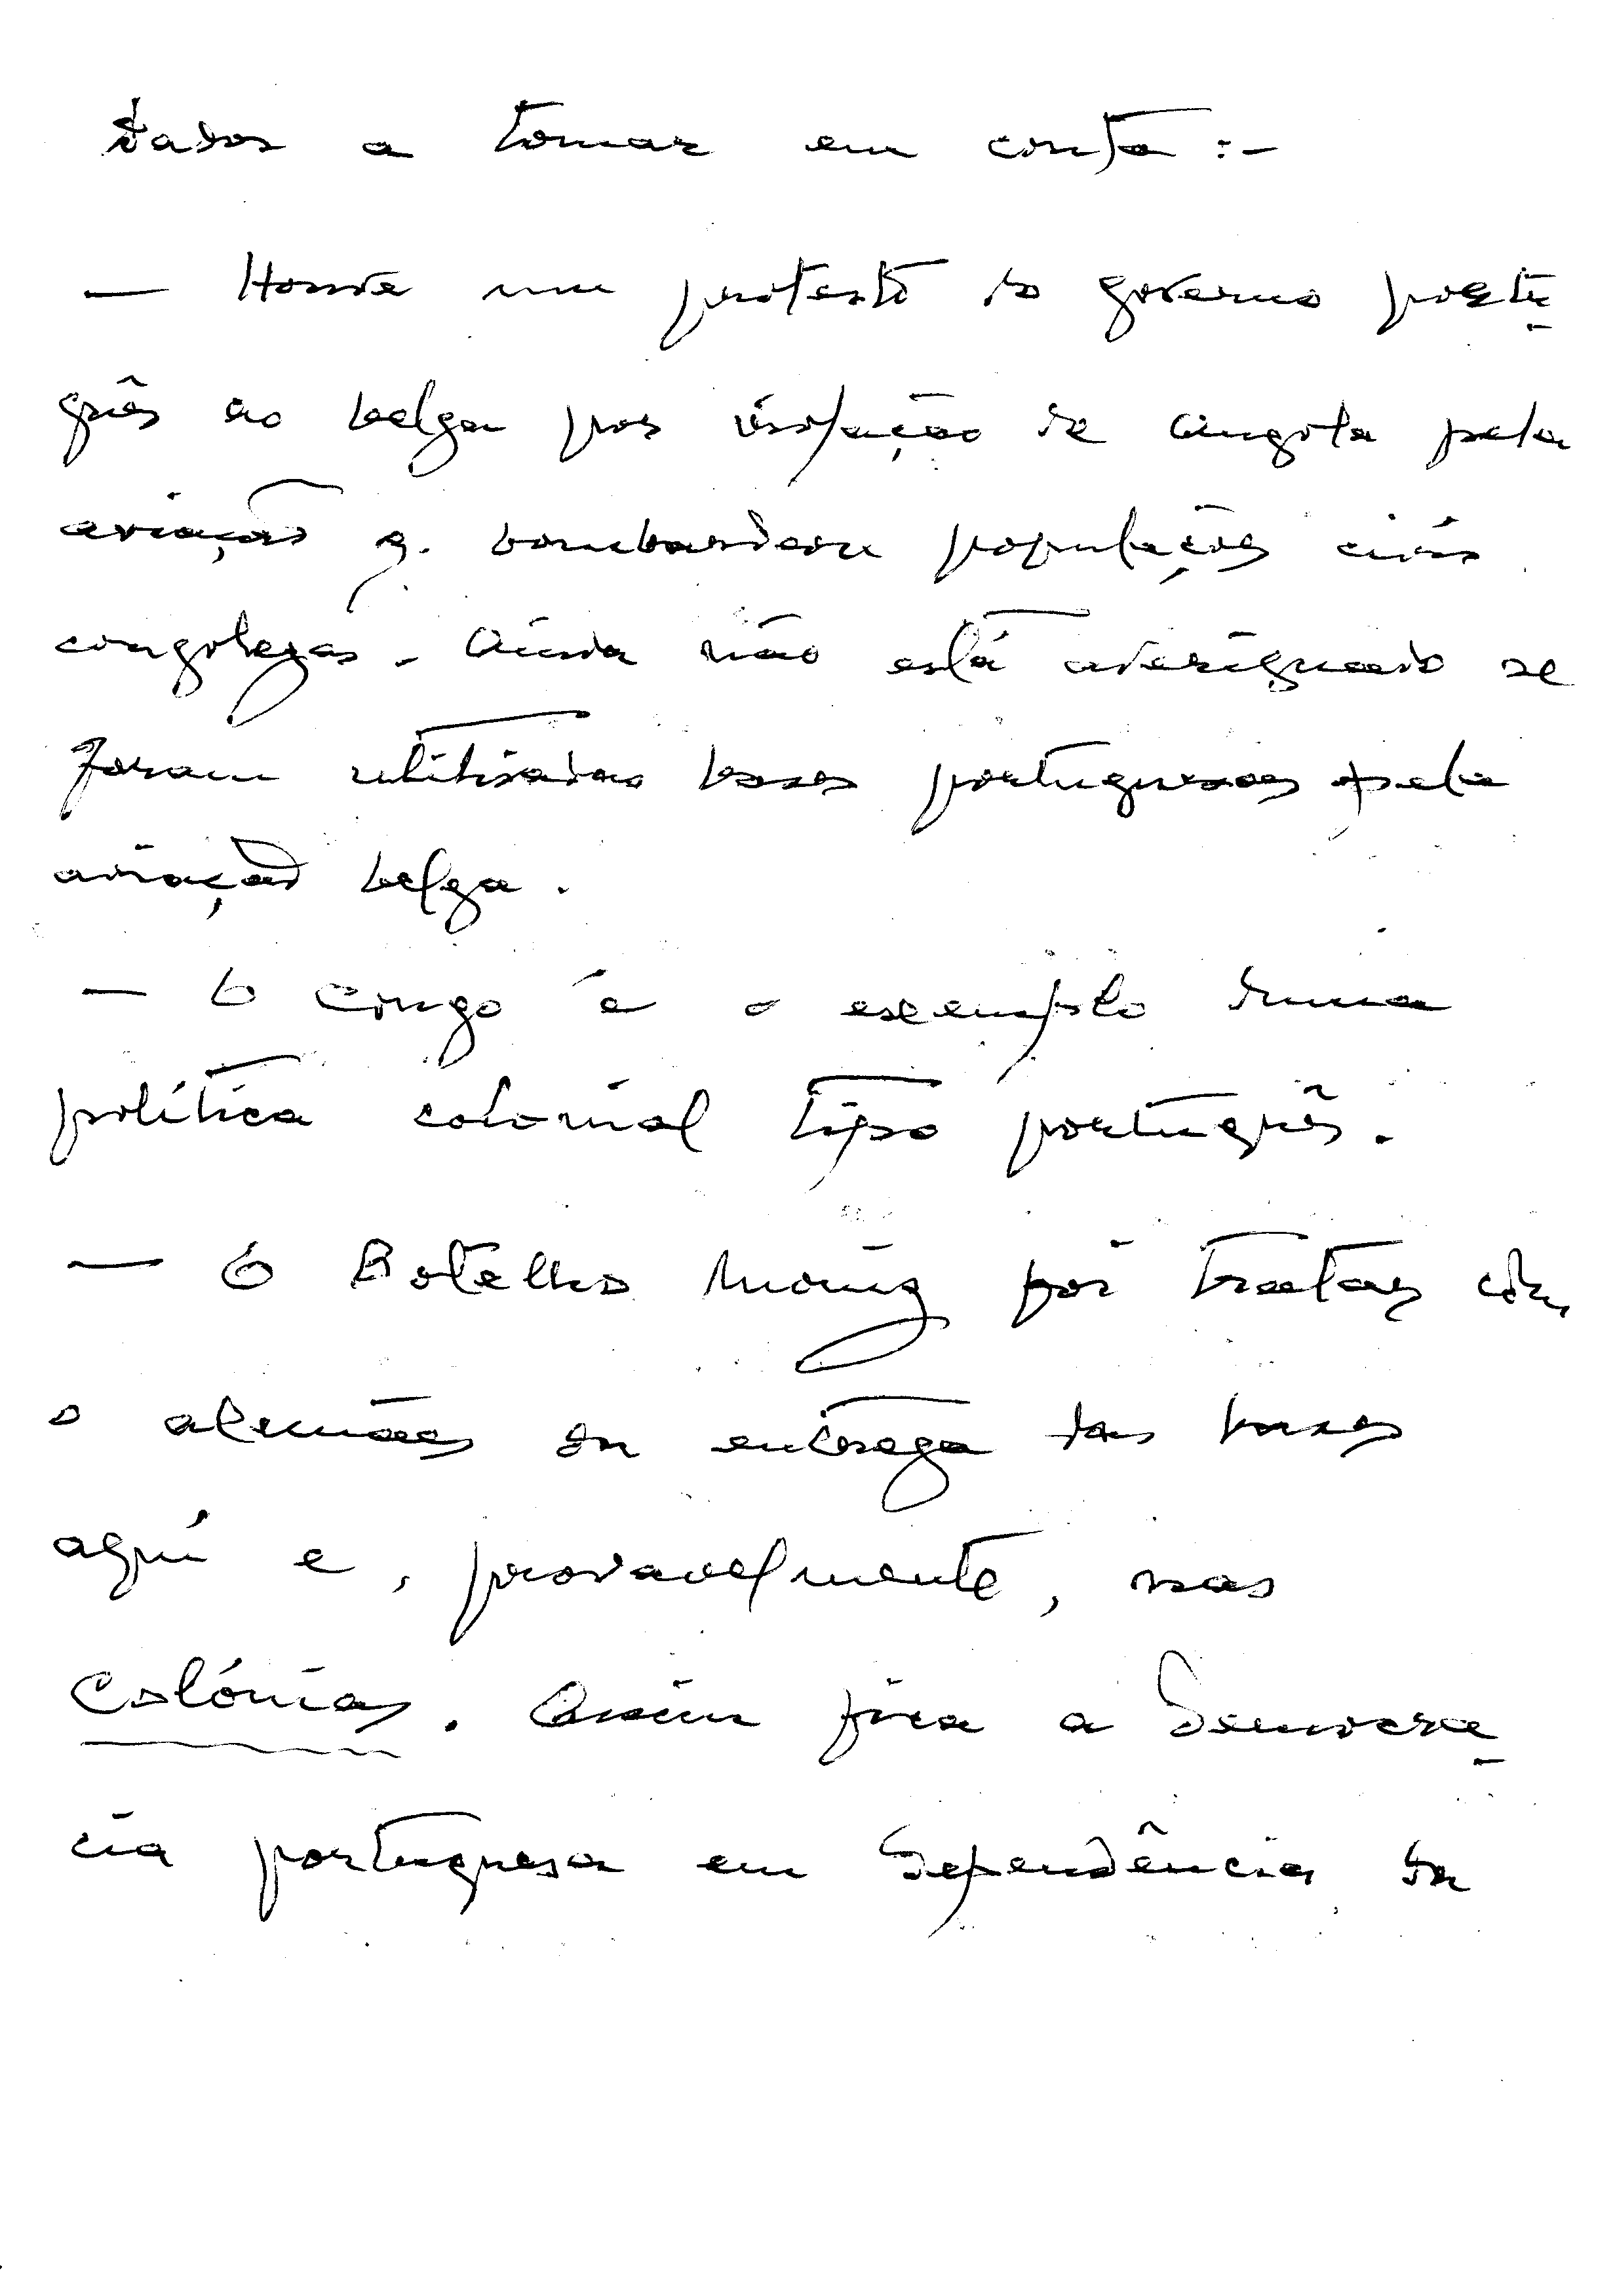 dados a tomar em conta :-
— Houve um protesto do governo portu-
guês ao belga por violação de Angola pela
aviação q. bombardeou populações civis
congolezas. Ainda não está averiguado se
foram utilisadas bases portuguesas pela
aviação belga.
— O Congo é o exemplo duma
política colonial tipo português.
— O Botelho Moniz foi tratar com
o alemães da entrega das bases
aqui e, provavelmente, nas
Colónias. Assim fica a Democra-
cia portuguesa em dependência da